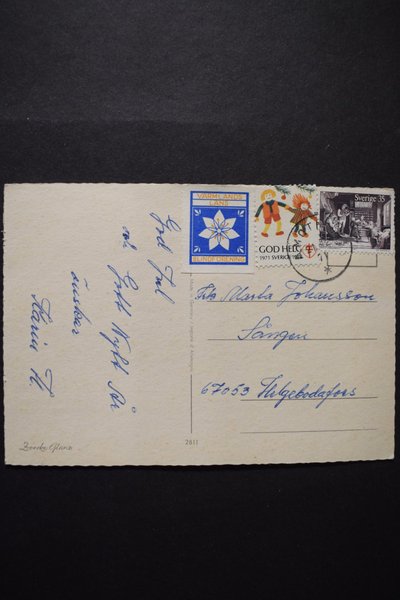 God Jul
och Gott Nytt År
önskar
Karin H.
VÄRMLANDS
LÄNS
BLINDFÖRENING
GOD HELG
1971 SVERIGE
Sverige 35
Märta Johansson
Sången
67053 Helgebodafors
2811